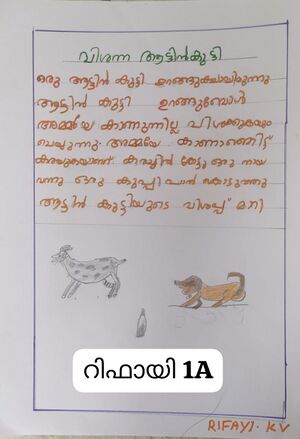 വിശന്ന ആട്ടിൻകുട്ടി
ഒരു ആട്ടിൻ കുട്ടി ഉറങ്ങുകയായിരുന്നു
ആട്ടിൻ കുട്ടി ഉറങ്ങുബോൾ
അമ്മയെ കാണുന്നില്ല വിശക്കുകയും
ചെയ്യുന്നു. അമ്മയെ കാണാഞ്ഞിട്ട്
കരയുകയാണ്. കരച്ചിൽ കേട്ടു ഒരു നായ
വന്നു ഒരു കുപ്പി പാൽ കൊടുത്തു
ആട്ടിൻ കുട്ടിയുടെ വിശപ്പ് മാറി
റിഫായി 1A
RIFAYI. KV